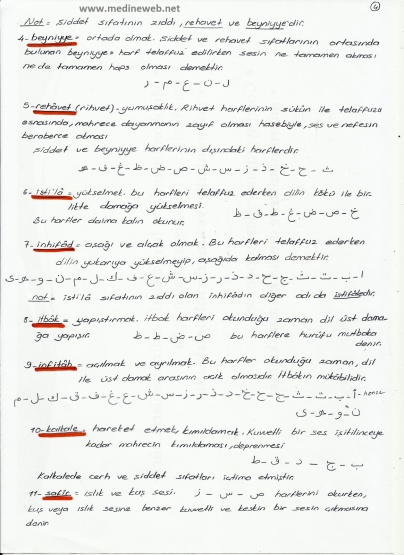 www.medineweb.net
4
Not = Şiddet sıfatının zıddı, rehavet ve beyniyye'dir.
4-beyniyye = ortada olmak. Şiddet ve rehavet sıfatlarının ortasında
bulunan beyniyye = harf telaffuz edilirken sesin ne tamamen akması
ne de tamamen haps olması demektir.
ل - ن - ع - م - ر
5-rehâvet (rihvet) - yumuşaklık. Rihvet harflerinin sükûn ile telaffuzu
esnasında, mahrece dayanmanın zayıf olması hasebiyle, ses ve nefesin
beraberce akması
Şiddet ve beyniyye harflerinin dışındaki harflerdir.
ث - ح - خ - ذ - ز - س - ش - ص - ض - ظ - غ - ف - ه
6-isti'lâ = yükselmek. bu harfleri telaffuz ederken dilin kökü ile bir-
likte damağa yükselmesi.
Bu harfler daima kalın okunur.
خ - ص - ض - غ - ط - ق - ظ
7-inhifâd = aşağı ve alçak olmak. Bu harfleri telaffuz ederken
dilin yukarıya yükselmeyip, aşağıda kalması demektir.
ا - ب - ت - ث - ج - ح - د - ذ - ر - ز - س - ش - ع - ف - ك - ل - م - ن - و - ه - ى
not = istilâ sıfatının zıddı olan inhifâdın diğer adı da istifâledir.
8-itbâk = yapıştırmak. itbak harfleri okunduğu zaman dil üst dama-
ğa yapışır. ص - ض - ط - ظ bu harflere hurûfu mutbaka
denir.
9-infitâh = açılmak ve ayrılmak. Bu harfler okunduğu zaman, dil
ile üst damak arasının açık olmasıdır. İtbâkın mukâbilidir.
أ - ب - ت - ث - ج - ح - خ - د - ذ - ر - ز - س - ش - ع - غ - ف - ق - ك - ل - م
ن - و - ه - ى
10-kalkale = hareket etmek, kımıldamak. Kuvvetli bir ses işitilinceye
kadar mahrecin kımıldaması, deprenmesi
ب - ج - د - ق - ط
Kalkalede cehr ve şiddet sıfatları ictima etmiştir.
11-safîr = ıslık ve kuş sesi. ص - س - ز harflerini okurken,
kuş veya ıslık sesine benzer kuvvetli ve keskin bir sesin çıkmasına
denir